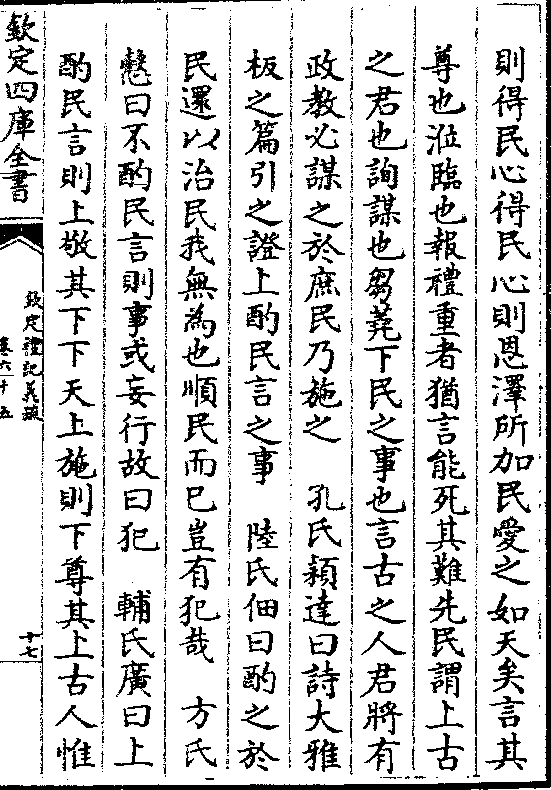 則得民心得民心則恩澤所加民愛之如天矣言其
尊也涖臨也報禮重者猶言能死其難先民謂上古
之君也詢謀也芻蕘下民之事也言古之人君將有
政教必謀之於庶民乃施之　孔氏穎達曰詩大雅
板之篇引之證上酌民言之事　陸氏佃曰酌之於
民還以治民我無為也順民而已豈有犯哉　方氏
慤曰不酌民言則事或妄行故曰犯　輔氏廣曰上
酌民言則上敬其下下天上施則下尊其上古人惟
欽定四庫全書
欽定禮記義疏
卷六十五
十七